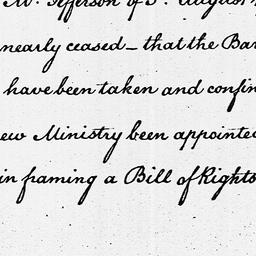 Mr. Jefferson of 3. August
nearly ceased – that the Bar
have been taken and confin
ew Ministry been appointed
in framing a Bill of Rights